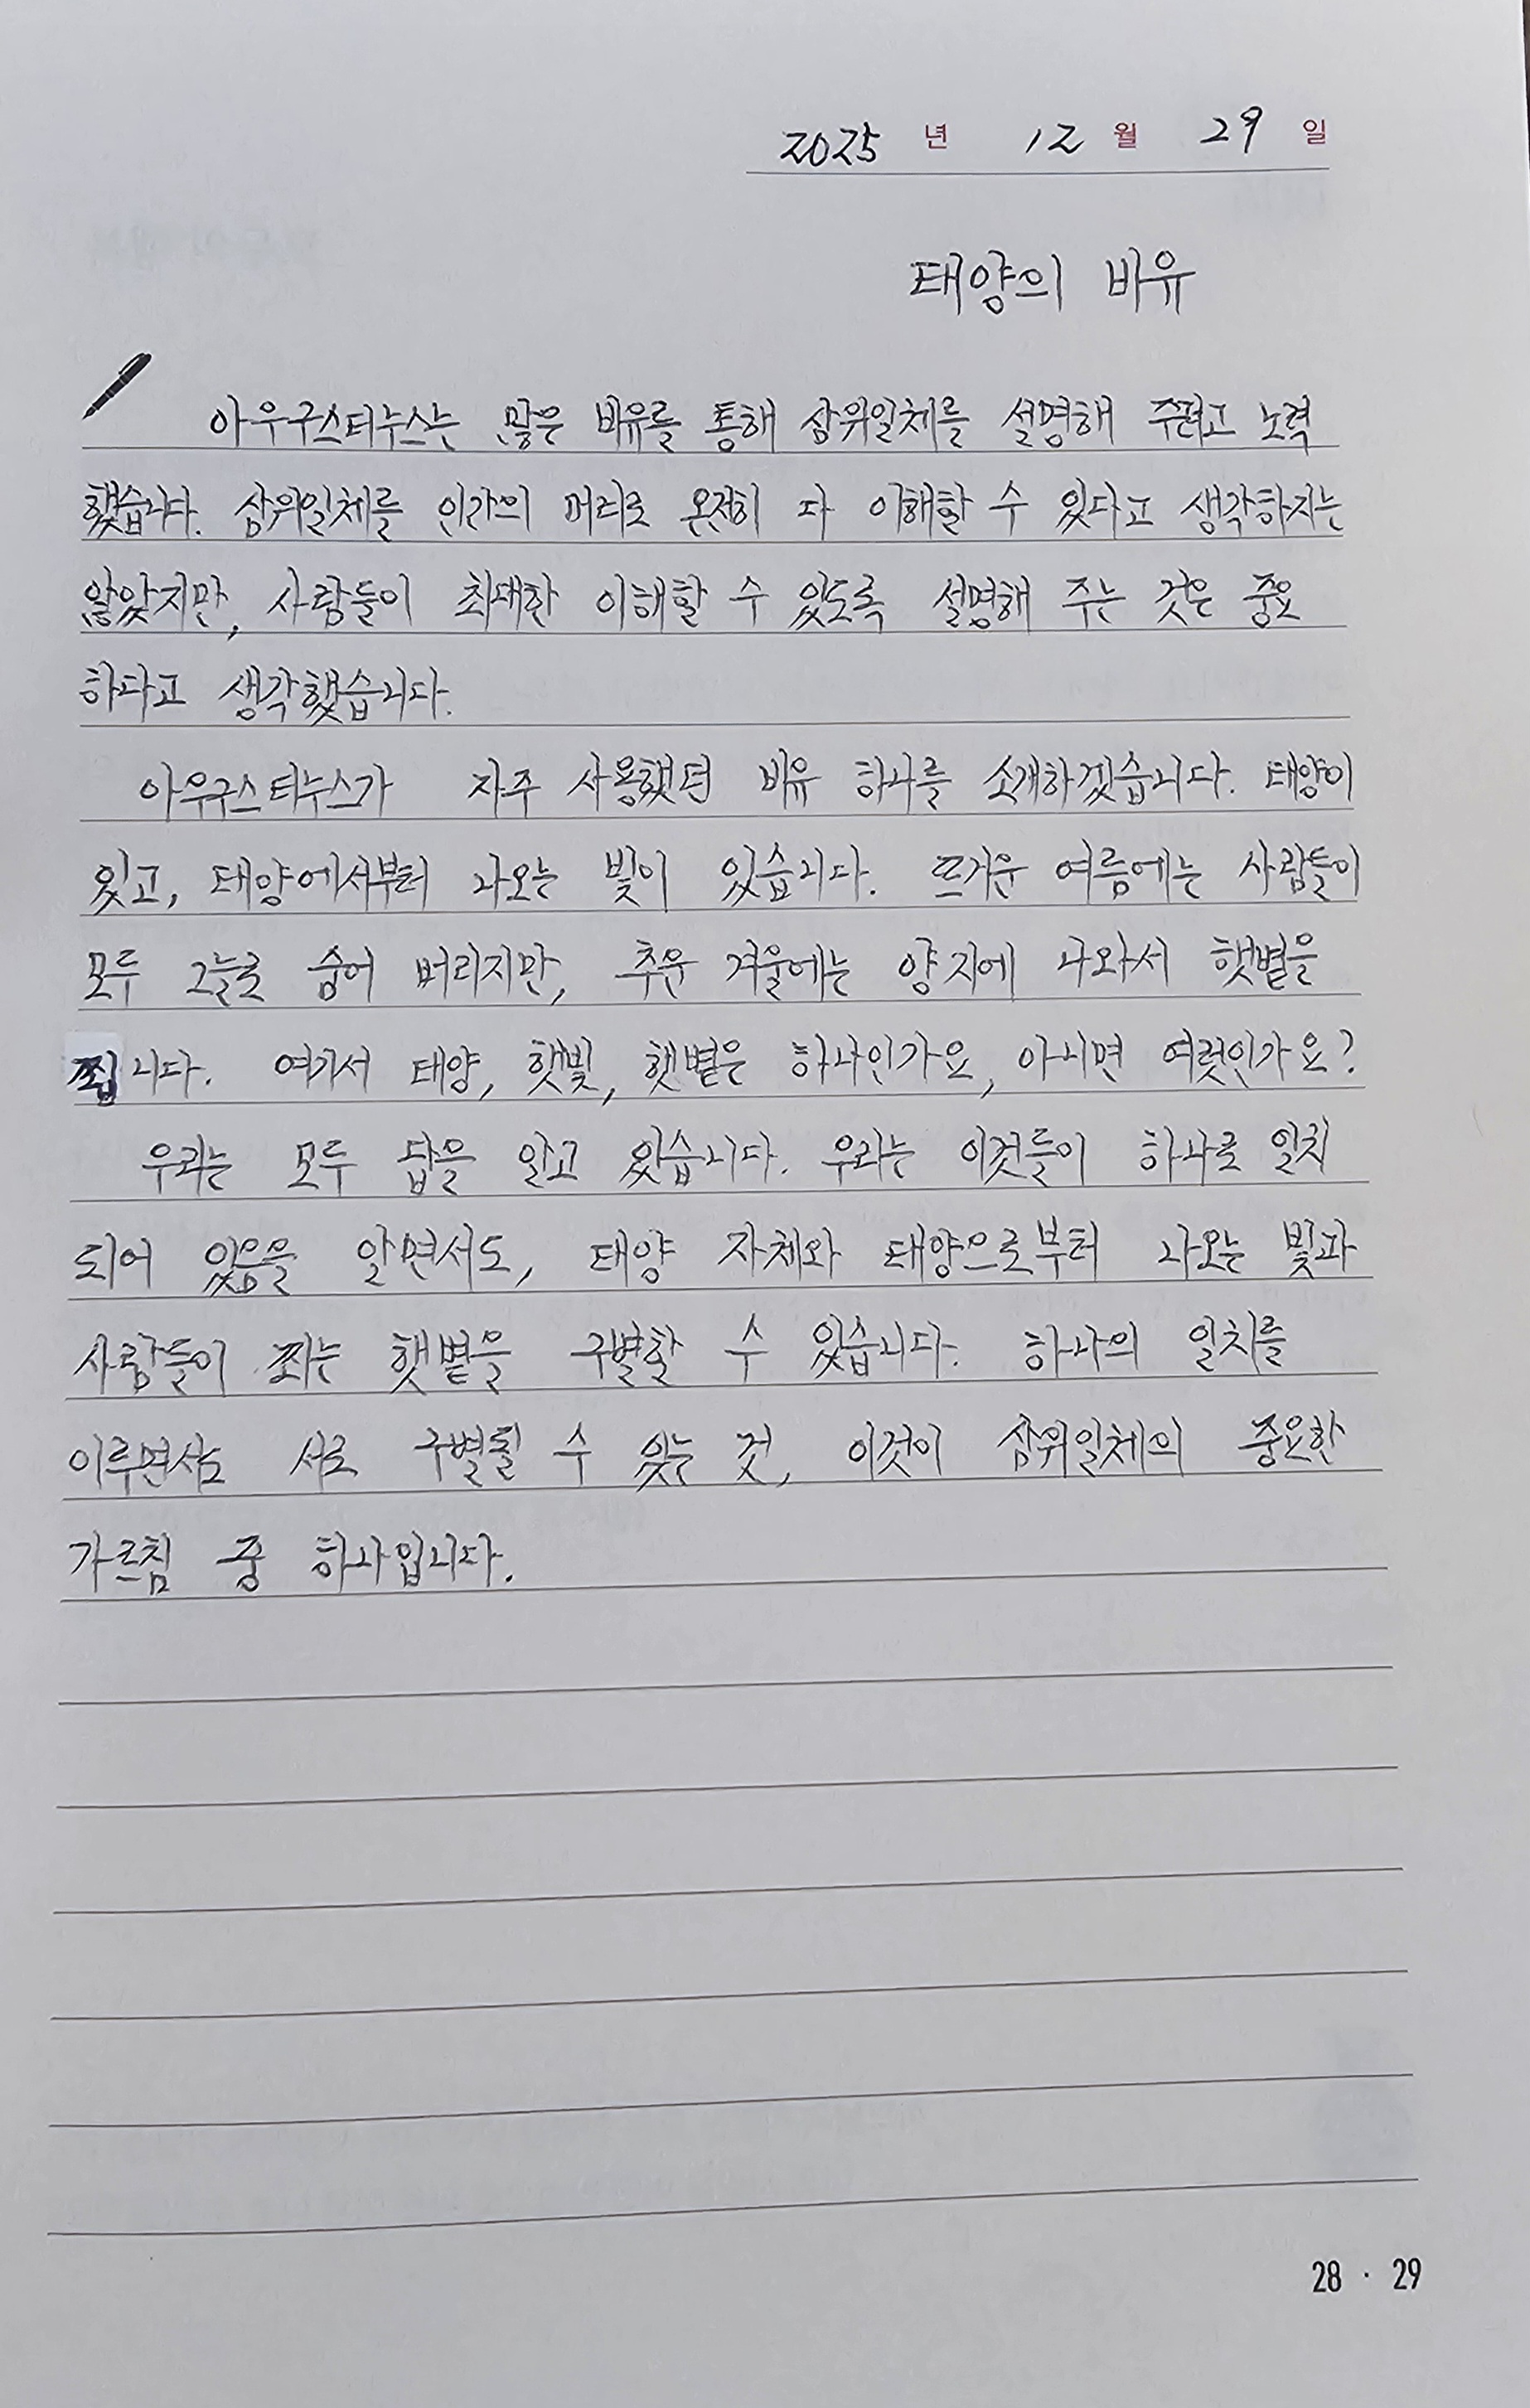 2025 년 12 월 29 일
태양의 비유
아우구스티누스는 많은 비유를 통해 삼위일체를 설명해 주려고 노력
했습니다. 삼위일체를 인간의 머리로 온전히 다 이해할 수 있다고 생각하지는
않았지만, 사람들이 최대한 이해할 수 있도록 설명해 주는 것은 중요
하다고 생각했습니다.
아우구스티누스가 자주 사용했던 비유 하나를 소개하겠습니다. 태양이
있고, 태양에서부터 나오는 빛이 있습니다. 뜨거운 여름에는 사람들이
모두 그늘로 숨어 버리지만, 추운 겨울에는 양지에 나와서 햇볕을
찝니다. 여기서 태양, 햇빛, 햇볕은 하나인가요, 아니면 여럿인가요?
우리는 모두 답을 알고 있습니다. 우리는 이것들이 하나로 일치
되어 있음을 알면서도, 태양 자체와 태양으로부터 나오는 빛과
사람들이 쬐는 햇볕을 구별할 수 있습니다. 하나의 일치를
이루면서도 서로 구별될 수 있는 것, 이것이 삼위일체의 중요한
가르침 중 하나입니다.
28 · 29